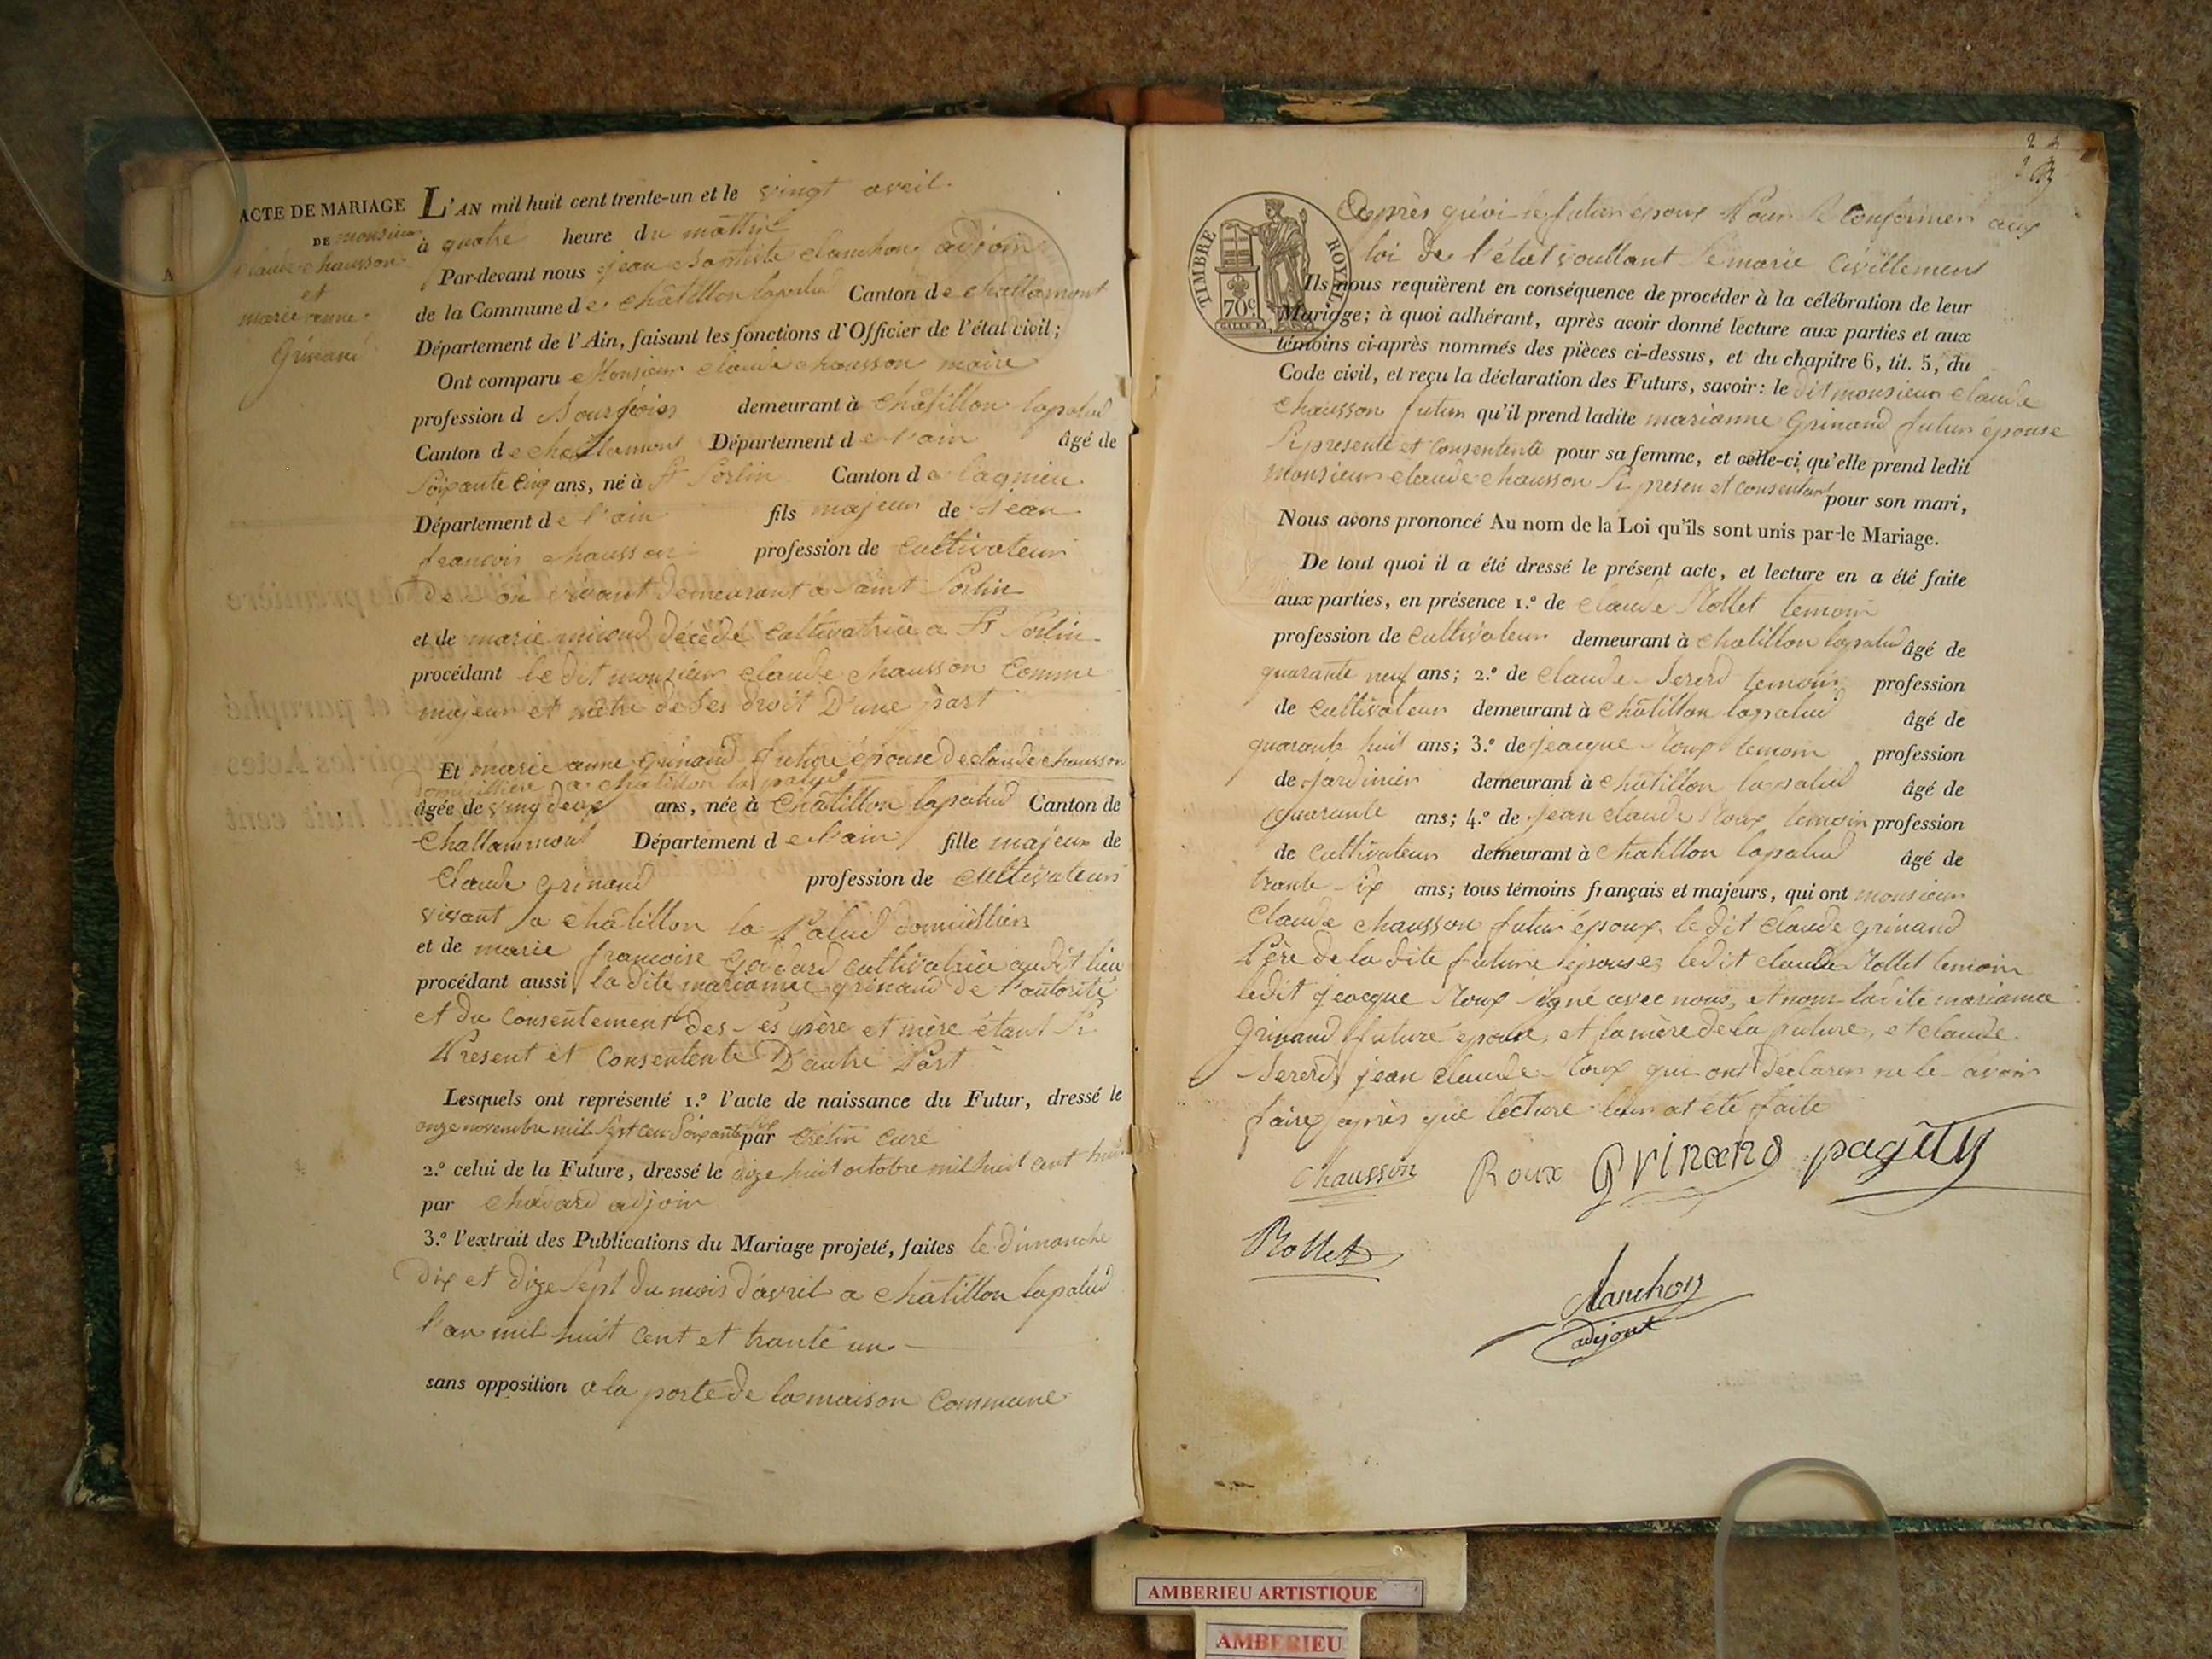 ACTE DE MARIAGE
DE monsieur
claude chausson
et
marie anne
Grinand
L'AN mil huit cent trente-un et le vingt avril
à quatre heure du mattin
Par-devant nous jean Baptiste clanchon adjoin
de la Commune de châtillon lapalud Canton de challamont
Département de l'Ain, faisant les fonctions d'Officier de l'état civil;
Ont comparu Monsieur claude chausson maire
profession d Bourgeois demeurant à châtillon lapalud
Canton de challamont Département de l'ain âgé de
Soixante Cinq ans, né à St Sorlin Canton de lagnieu
Département de l'ain fils majeur de jean
francois chausson profession de Cultivateur
de son vivant demeurant a saint Sorlin
et de marie miroud décédé Cultivatrice a St Sorlin
procédant le dit monsieur claude chausson Comme
majeur et maître de Ses droit D'une part
Et marie anne Grinand future épouse de claude chausson
domicillier a châtillon la palud
âgée de vingt deux ans, née à Châtillon lapalud Canton de
Challammont Département de l'ain fille majeur de
Claude Grinand profession de Cultivateur
vivant a châtillon la Palud domicillier
et de marie francoise Goddard Cultivatrice audit lieu
procédant aussi la dite marianne grinand de l'autorité
et du Consentement des Ses père et mère étant Si
Present et Consentente D'autre Part
Lesquels ont représenté 1.º l'acte de naissance du Futur, dressé le
onze novembre mil Sept cen Soixante six par Crétin Curé
2.º celui de la Future, dressé le dize huit octobre mil huit cent huit
par Chavard adjoin
3.º l'extrait des Publications du Mariage projeté, faites le dimanche
Dix et dize Sept du mois d'avril a châtillon lapalud
l'an mil huit Cent et trante un
sans opposition a la porte de la maison Commune
TIMBRE ROYAL
70c
Après quoi le futur époux Pour Se Conformer aux
loi de l'état voullant Se marie Civillement
Ils nous requièrent en conséquence de procéder à la célébration de leur
Mariage; à quoi adhérant, après avoir donné lecture aux parties et aux
témoins ci-après nommés des pièces ci-dessus, et du chapitre 6, tit. 5, du
Code civil, et reçu la déclaration des Futurs, savoir: le dit monsieur claude
chausson futur qu'il prend ladite marianne Grinand futur épouse
Si presente et Consentente pour sa femme, et celle-ci qu'elle prend ledit
monsieur claude chausson Si presen et Consentant pour son mari,
Nous avons prononcé Au nom de la Loi qu'ils sont unis par-le Mariage.
De tout quoi il a été dressé le présent acte, et lecture en a été faite
aux parties, en présence 1.º de claude Rollet temoin
profession de Cultivateur demeurant à Châtillon lapalud âgé de
quarante neuf ans; 2.º de Claude Sererd temoin profession
de Cultivateur demeurant à Châtillon lapalud âgé de
quarante huit ans; 3.º de jeacque Roux temoin profession
de Jardinier demeurant à Châtillon lapalud âgé de
Quarante ans; 4.º de jean claude Roux temoin profession
de Cultivateur demeurant à Chatillon lapalud âgé de
trante Six ans; tous témoins français et majeurs, qui ont monsieur
Claude chausson futur époux, le dit claude grinand
Père de la dite future épouse, ledit claude Rollet temoin
ledit jeacque Roux Signé avec nous, et nom ladite marianne
Grinand future épouse, et la mère de la future, et claude
Sererd, jean Claude Roux qui ont déclaren ne le Savoir
faire apprès que lecture leur at été faite
Chausson Roux Grinand pagety
Rollet
Clanchon
adjoint
AMBERIEU ARTISTIQUE
AMBERIEU